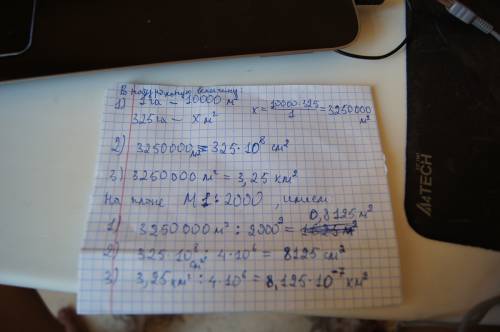 В натуральную величину:
1) 1 га – 10000 м²
325 га – x м²
x = 10000·325/1 = 3250000 м²
2) 3250000 м² = 325·10⁸ см²
3) 3250000 м² = 3,25 км²
На плане М 1:2000, имеем
0,8125 м²
1) 3250000 м² : 2000² =
2) 325·10⁸ см² 4·10⁶ = 8125 см²
3) 3,25 км² : 4·10⁶ = 8,125·10⁻⁷ км²
A4TECH